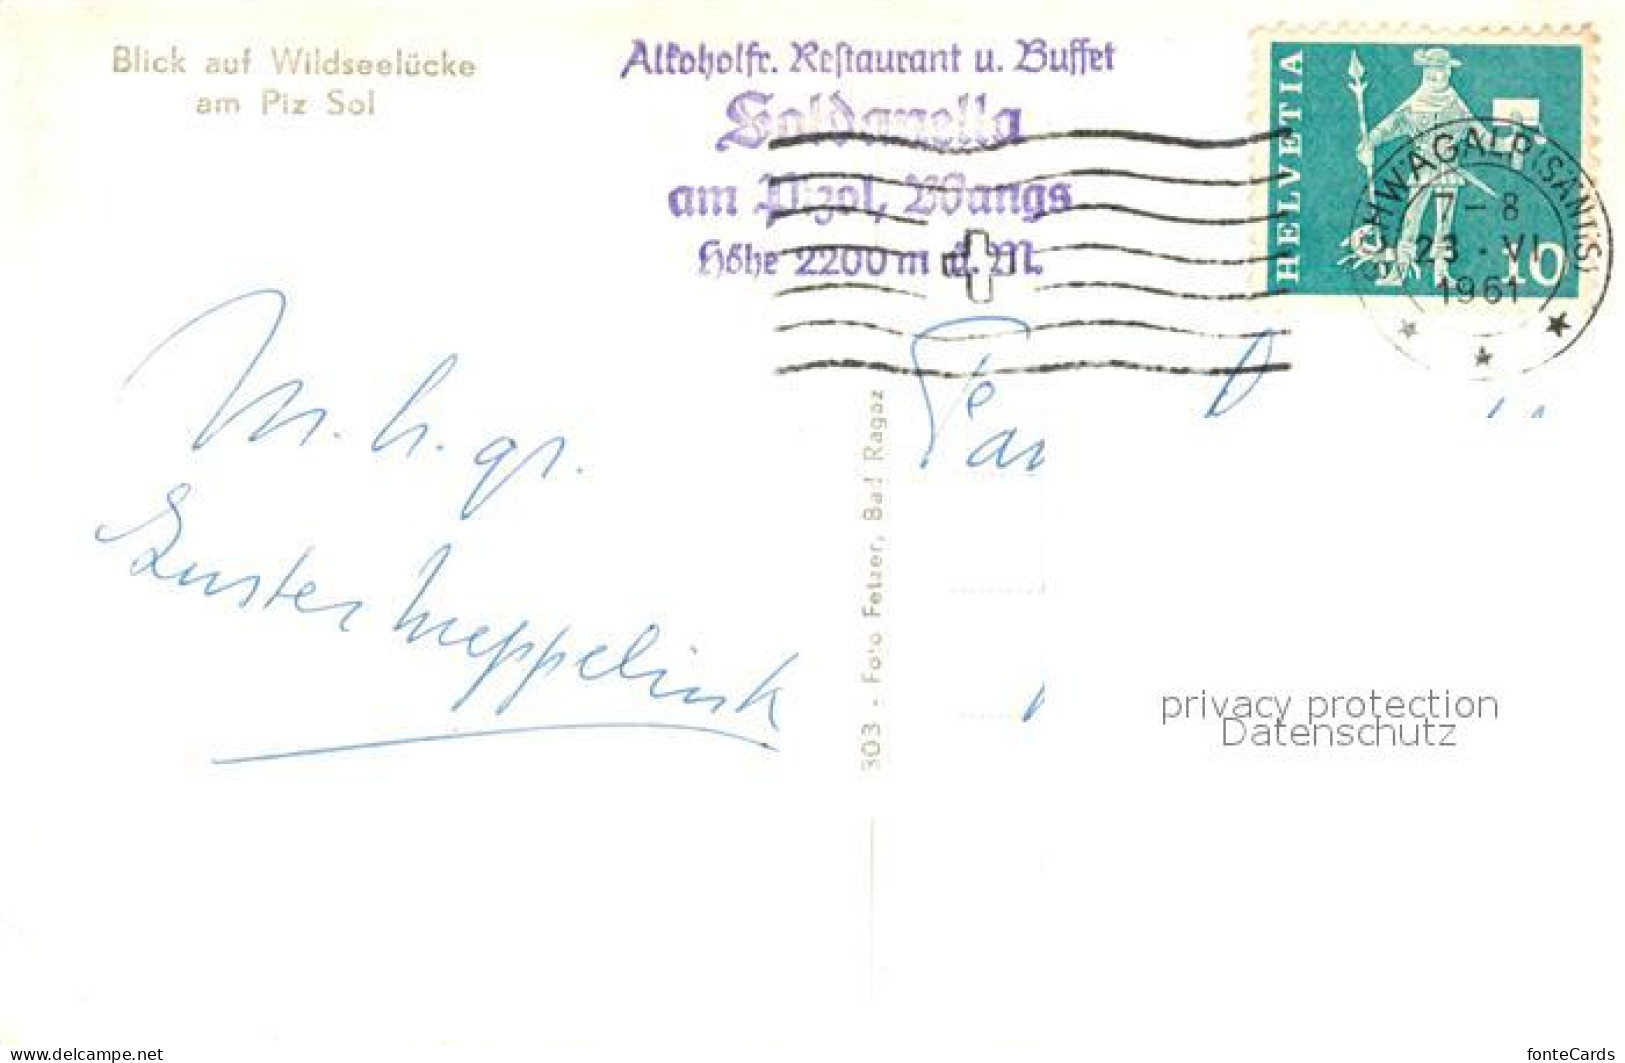 Blick auf Wildseelücke
am Piz Sol
Alkoholfr. Restaurant u. Buffet
Soldanella
am Pizol, Wangs
Höhe 2200 m ü. M.
HELVETIA
10
SCHWÄGALP (SÄNTIS)
7-8
23 · VI
1961
M. h. gr.
Zuster Meppelink
Fa
303 - Foto Fetzer, Bad Ragaz
privacy protection
Datenschutz
the-best-of-the-world
fonteCards